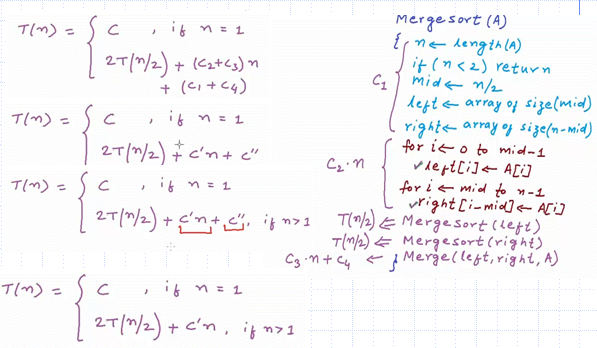 T(n) = { C , if n = 1
2T(n/2) + (C2+C3)n
+ (C1 + C4)
T(n) = { C , if n = 1
2T(n/2) + C'n + C''
T(n) = { C , if n = 1
2T(n/2) + C'n + C'', if n>1
T(n) = { C , if n = 1
2T(n/2) + C'n, if n>1
Mergesort(A)
{ n ← length(A)
if (n < 2) return
mid ← n/2
C1
left ← array of size(mid)
right ← array of size(n-mid)
for i ← 0 to mid-1
C2·n
✓left[i] ← A[i]
for i ← mid to n-1
✓right[i-mid] ← A[i]
T(n/2) ⇐ Mergesort(left)
T(n/2) ⇐ Mergesort(right)
C3·n + C4 ← } Merge(left, right, A)